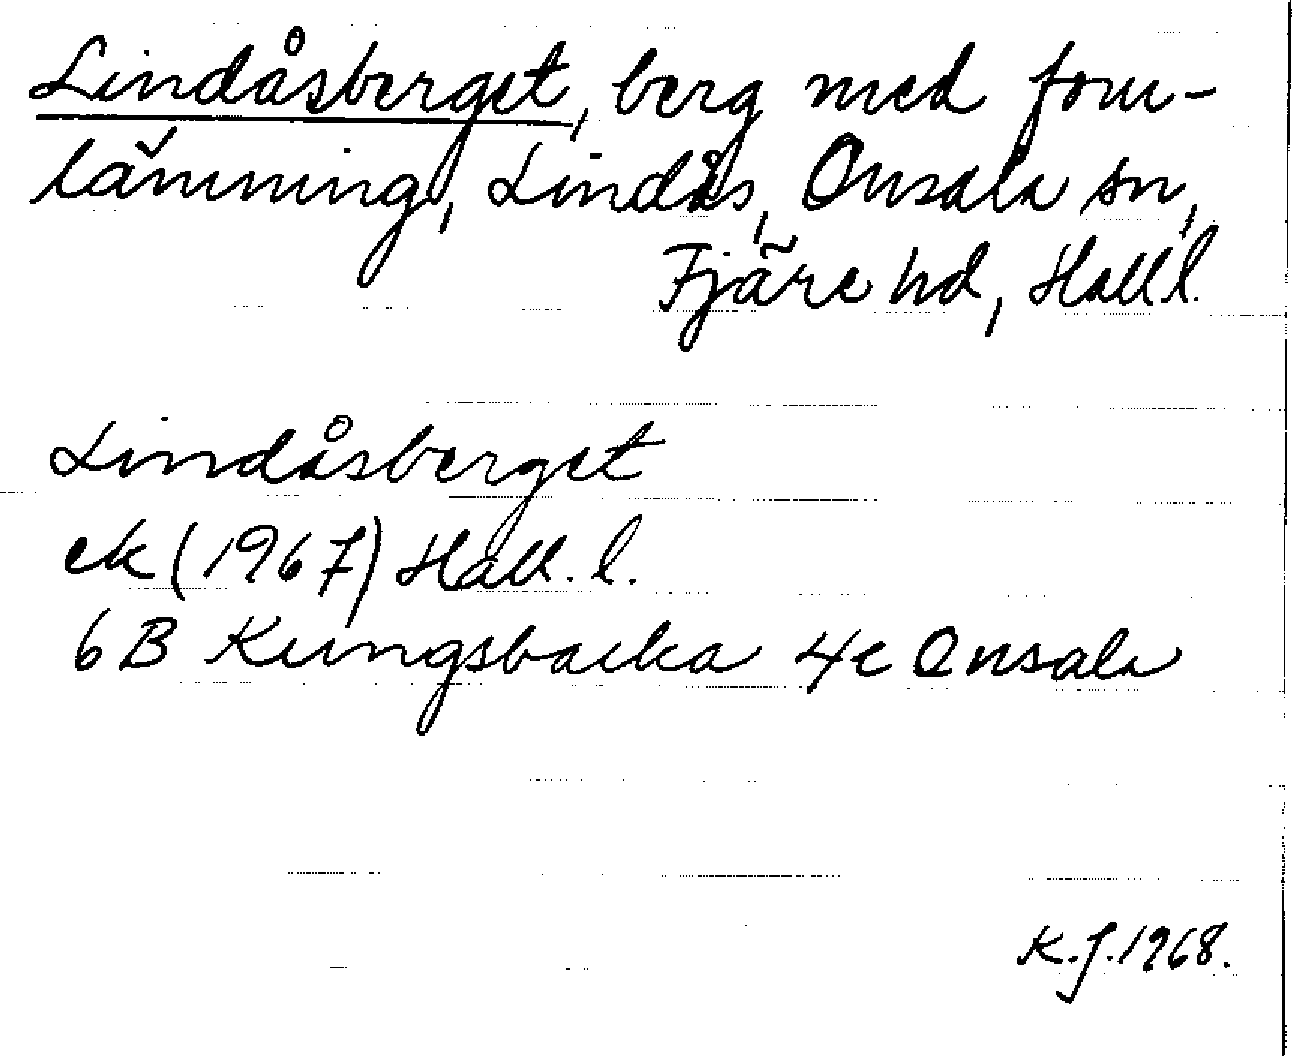 Lindåsberget, berg med forn-
lämning, Lindås, Onsala sn,
Fjäre hd, Hall.
Lindåsberget
ek (1967) Hall. l.
6B Kungsbacka 4c Onsala
K.J. 1968.